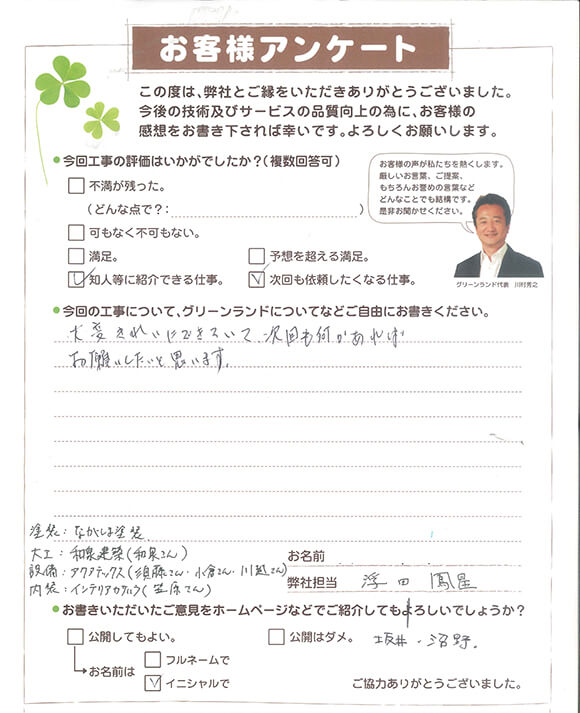 お客様アンケート
この度は、弊社とご縁をいただきありがとうございました。
今後の技術及びサービスの品質向上の為に、お客様の
感想をお書き下されば幸いです。よろしくお願いします。
今回工事の評価はいかがでしたか？（複数回答可）
不満が残った。
（どんな点で？：　）
可もなく不可もない。
満足。
予想を超える満足。
知人等に紹介できる仕事。
次回も依頼したくなる仕事。
お客様の声が私たちを熱くします。
厳しいお言葉、ご提案、
もちろんお誉めの言葉など
どんなことでも結構です。
是非お聞かせください。
グリーンランド代表　川村秀之
今回の工事について、グリーンランドについてなどご自由にお書きください。
大変きれいにできていて、次回も何かあれば
お願いしたいと思います。
塗装：ながしま塗装
大工：和泉建築（和泉さん）
設備：アクアテックス（須藤さん・小倉さん・川越さん）
内装：インテリアカケル（笠原さん）
お名前
弊社担当　浮田
坂井・沼野
お書きいただいたご意見をホームページなどでご紹介してもよろしいでしょうか？
公開してもよい。
公開はダメ。
お名前は
フルネームで
イニシャルで
ご協力ありがとうございました。